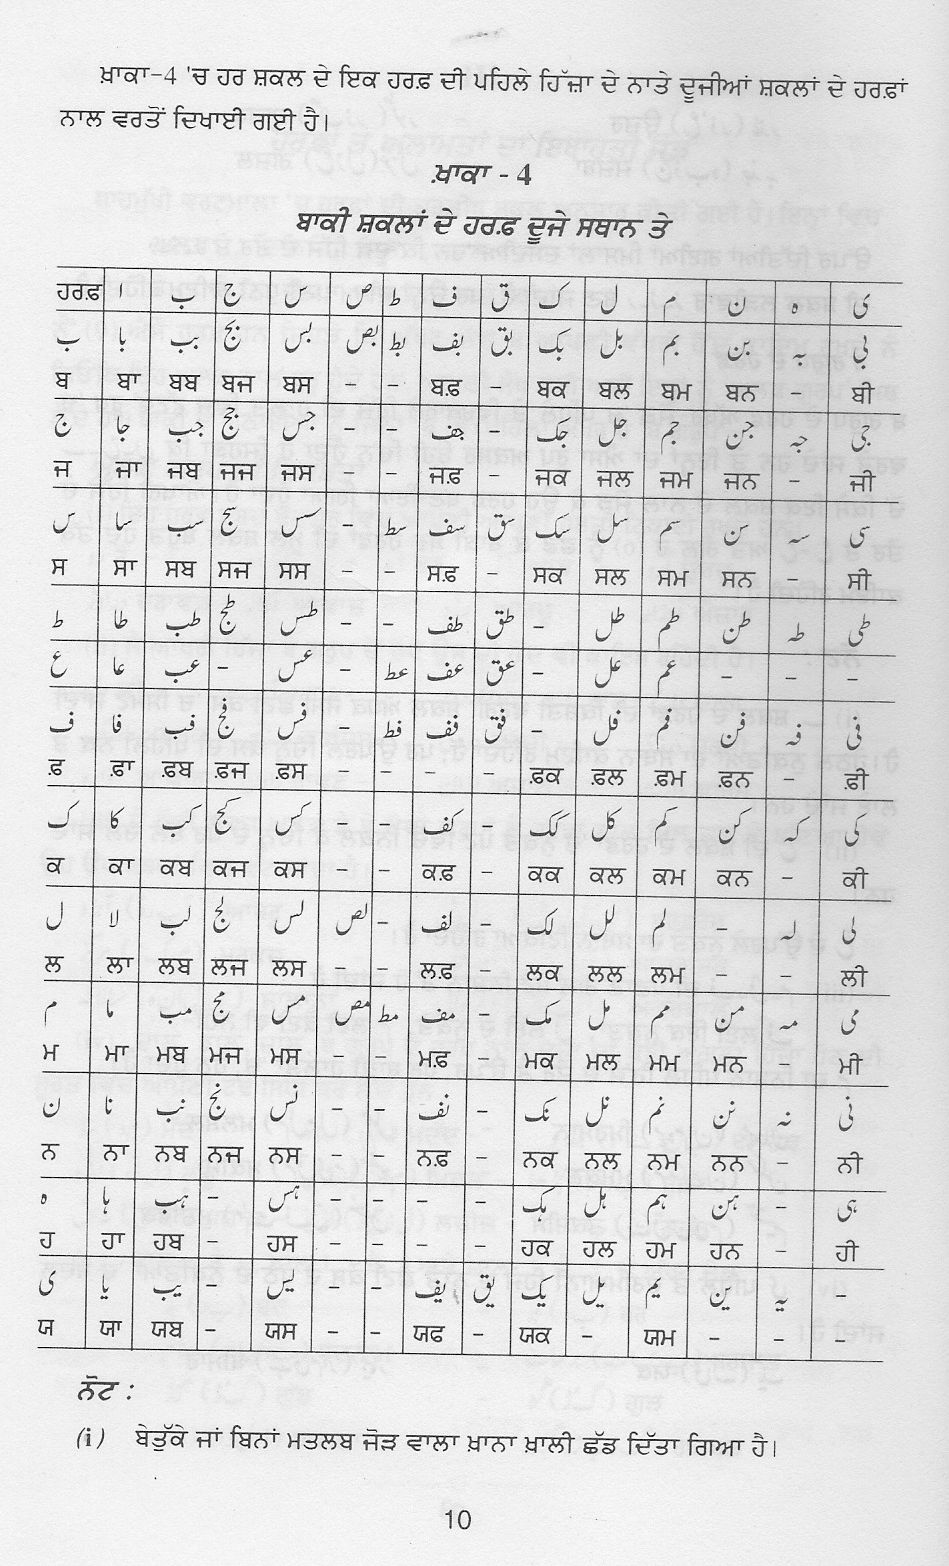 ਖ਼ਾਕਾ-4 'ਚ ਹਰ ਸ਼ਕਲ ਦੇ ਇਕ ਹਰਫ਼ ਦੀ ਪਹਿਲੇ ਹਿੱਜ਼ਾ ਦੇ ਨਾਤੇ ਦੂਜੀਆਂ ਸ਼ਕਲਾਂ ਦੇ ਹਰਫ਼ਾਂ
ਨਾਲ ਵਰਤੋਂ ਦਿਖਾਈ ਗਈ ਹੈ।
ਖ਼ਾਕਾ - 4
ਬਾਕੀ ਸ਼ਕਲਾਂ ਦੇ ਹਰਫ਼ ਦੂਜੇ ਸਥਾਨ ਤੇ
ਹਰਫ਼ ا ب ج س ص ط ف ق ک ل م ن ہ ی
ب با بب بج بس بص بط بف بق بک بل بم بن بہ بی
ਬ ਬਾ ਬਬ ਬਜ ਬਸ - - ਬਫ਼ - ਬਕ ਬਲ ਬਮ ਬਨ - ਬੀ
ج جا جب جج جس - - جف - جک جل جم جن جہ جی
ਜ ਜਾ ਜਬ ਜਜ ਜਸ - - ਜਫ਼ - ਜਕ ਜਲ ਜਮ ਜਨ - ਜੀ
س سا سب سج سس - سط سف سق سک سل سم سن سہ سی
ਸ ਸਾ ਸਬ ਸਜ ਸਸ - - ਸਫ਼ - ਸਕ ਸਲ ਸਮ ਸਨ - ਸੀ
ط طا طب طج طس - - طف طق - طل طم طن طہ طی
ع عا عب - عس - عط عف عق - عل عم - - -
ف فا فب فج فس - فط فف فق - فل فم فن فہ فی
ਫ਼ ਫ਼ਾ ਫ਼ਬ ਫ਼ਜ ਫ਼ਸ - - - - ਫ਼ਕ ਫ਼ਲ ਫ਼ਮ ਫ਼ਨ - ਫ਼ੀ
ک کا کب کج کس - - کف - کک کل کم کن کہ کی
ਕ ਕਾ ਕਬ ਕਜ ਕਸ - - ਕਫ਼ - ਕਕ ਕਲ ਕਮ ਕਨ - ਕੀ
ل لا لب لج لس لص - لف - لک لل لم - لہ لی
ਲ ਲਾ ਲਬ ਲਜ ਲਸ - - ਲਫ਼ - ਲਕ ਲਲ ਲਮ - - ਲੀ
م ما مب مج مس مص مط مف - مک مل مم من مہ می
ਮ ਮਾ ਮਬ ਮਜ ਮਸ - - ਮਫ਼ - ਮਕ ਮਲ ਮਮ ਮਨ - ਮੀ
ن نا نب نج نس - - نف - نک نل نم نن نہ نی
ਨ ਨਾ ਨਬ ਨਜ ਨਸ - - ਨਫ਼ - ਨਕ ਨਲ ਨਮ ਨਨ - ਨੀ
ہ ہا ہب - ہس - - - - ہک ہل ہم ہن - ہی
ਹ ਹਾ ਹਬ - ਹਸ - - - - ਹਕ ਹਲ ਹਮ ਹਨ - ਹੀ
ی یا یب - یس - - یف یق یک یل یم ین یہ -
ਯ ਯਾ ਯਬ - ਯਸ - - ਯਫ - ਯਕ - ਯਮ - - -
ਨੋਟ :
(i) ਬੇਤੁੱਕੇ ਜਾਂ ਬਿਨਾਂ ਮਤਲਬ ਜੋੜ ਵਾਲਾ ਖ਼ਾਨਾ ਖ਼ਾਲੀ ਛੱਡ ਦਿੱਤਾ ਗਿਆ ਹੈ।
10